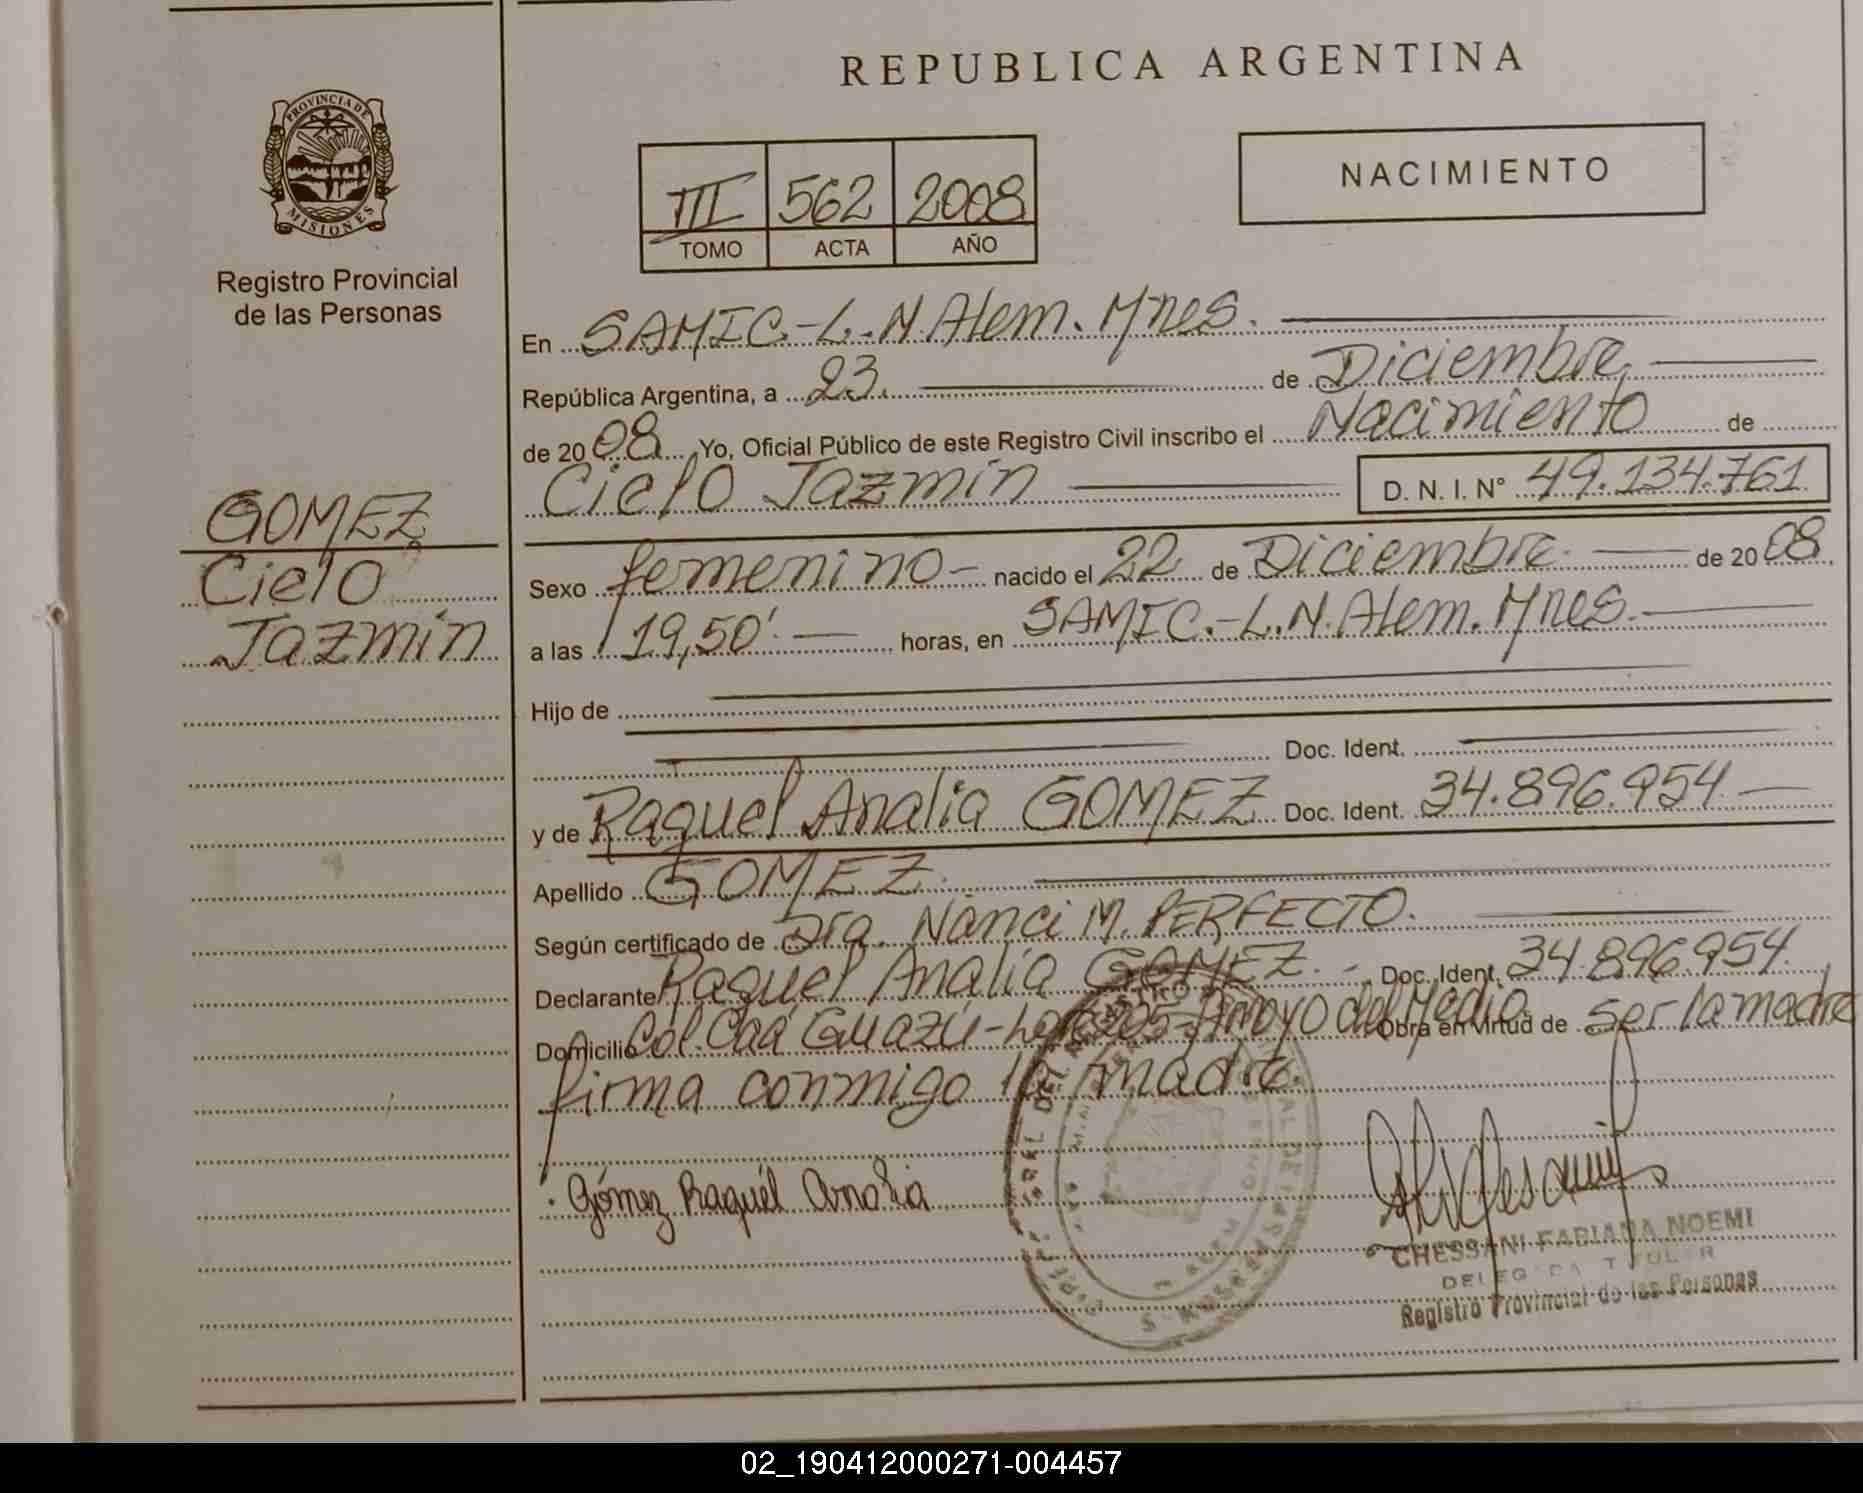 REPUBLICA ARGENTINA
PROVINCIA DE
MISIONES
Registro Provincial
de las Personas
III 562 2008
TOMO ACTA AÑO
NACIMIENTO
En SAMIC.-L.N.Alem.Mnes.
República Argentina, a 23. de Diciembre
de 2008. Yo, Oficial Público de este Registro Civil inscribo el Nacimiento de
Cielo Jazmín D. N. I. N° 49.134.761
GOMEZ
Cielo
Jazmín
Sexo femenino- nacido el 22 de Diciembre. de 2008.
a las 19,50'. horas, en SAMIC.-L.N.Alem.Mnes.-
Hijo de
Doc. Ident.
y de Raquel Analia GOMEZ Doc. Ident. 34.896.954
Apellido GOMEZ.
Según certificado de Dra. Nanci M. PERFECTO.
Declarante Raquel Analía GOMEZ.- Doc. Ident. 34.896.954.
Domicilio Col. Caá Guazú- Arroyo del Medio Obra en virtud de ser la madre
firma conmigo la madre.
Gómez Raquél Analia
CHESSANI FABIANA NOEMI
DELEGADA TITULAR
Registro Provincial de las Personas
02_190412000271-004457